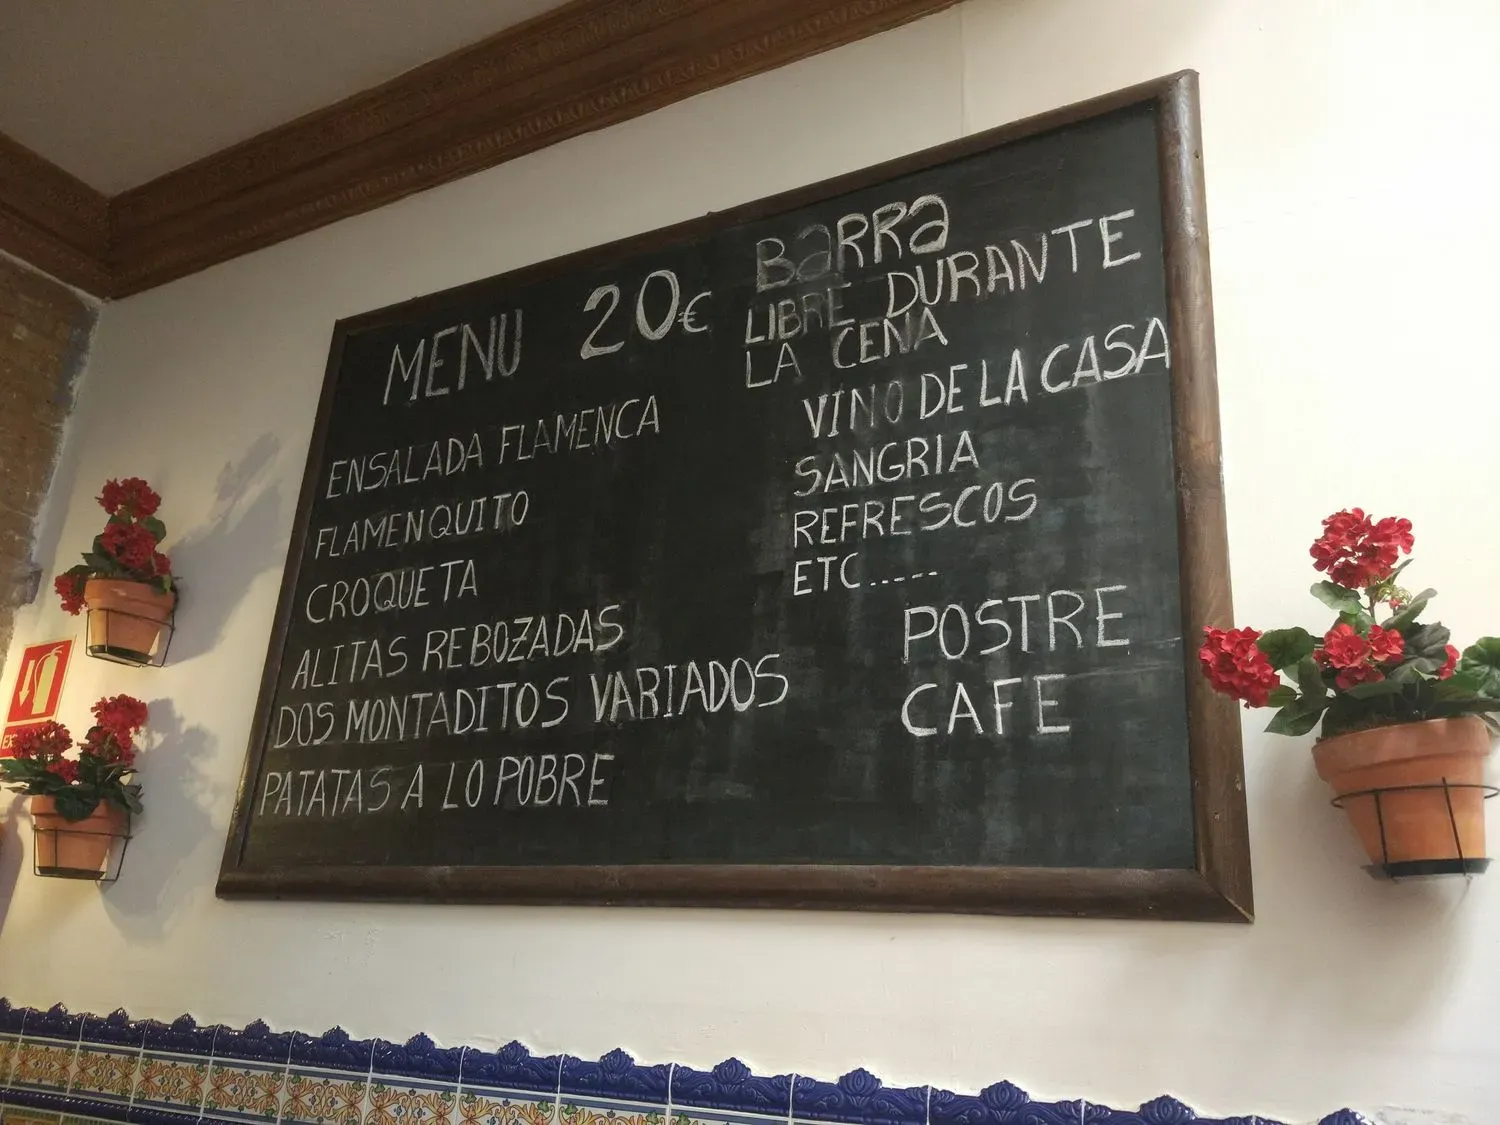 MENU 20€
ENSALADA FLAMENCA
FLAMENQUITO
CROQUETA
ALITAS REBOZADAS
DOS MONTADITOS VARIADOS
PATATAS A LO POBRE
BARRA
LIBRE DURANTE
LA CENA
VINO DE LA CASA
SANGRIA
REFRESCOS
ETC.....
POSTRE
CAFE